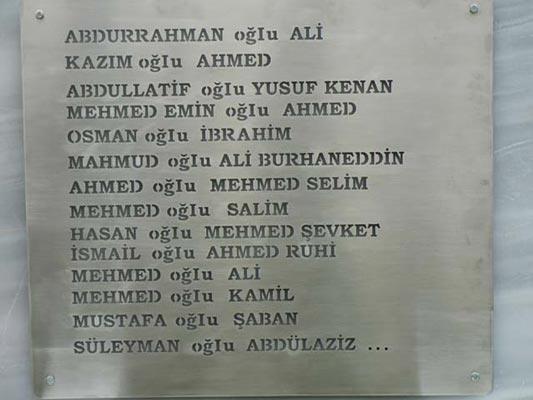 ABDURRAHMAN oğlu ALİ
KAZIM oğlu AHMED
ABDULLATİF oğlu YUSUF KENAN
MEHMED EMİN oğlu AHMED
OSMAN oğlu İBRAHİM
MAHMUD oğlu ALİ BURHANEDDİN
AHMED oğlu MEHMED SELİM
MEHMED oğlu SALİM
HASAN oğlu MEHMED ŞEVKET
İSMAİL oğlu AHMED RUHİ
MEHMED oğlu ALİ
MEHMED oğlu KAMİL
MUSTAFA oğlu ŞABAN
SÜLEYMAN oğlu ABDÜLAZİZ ...